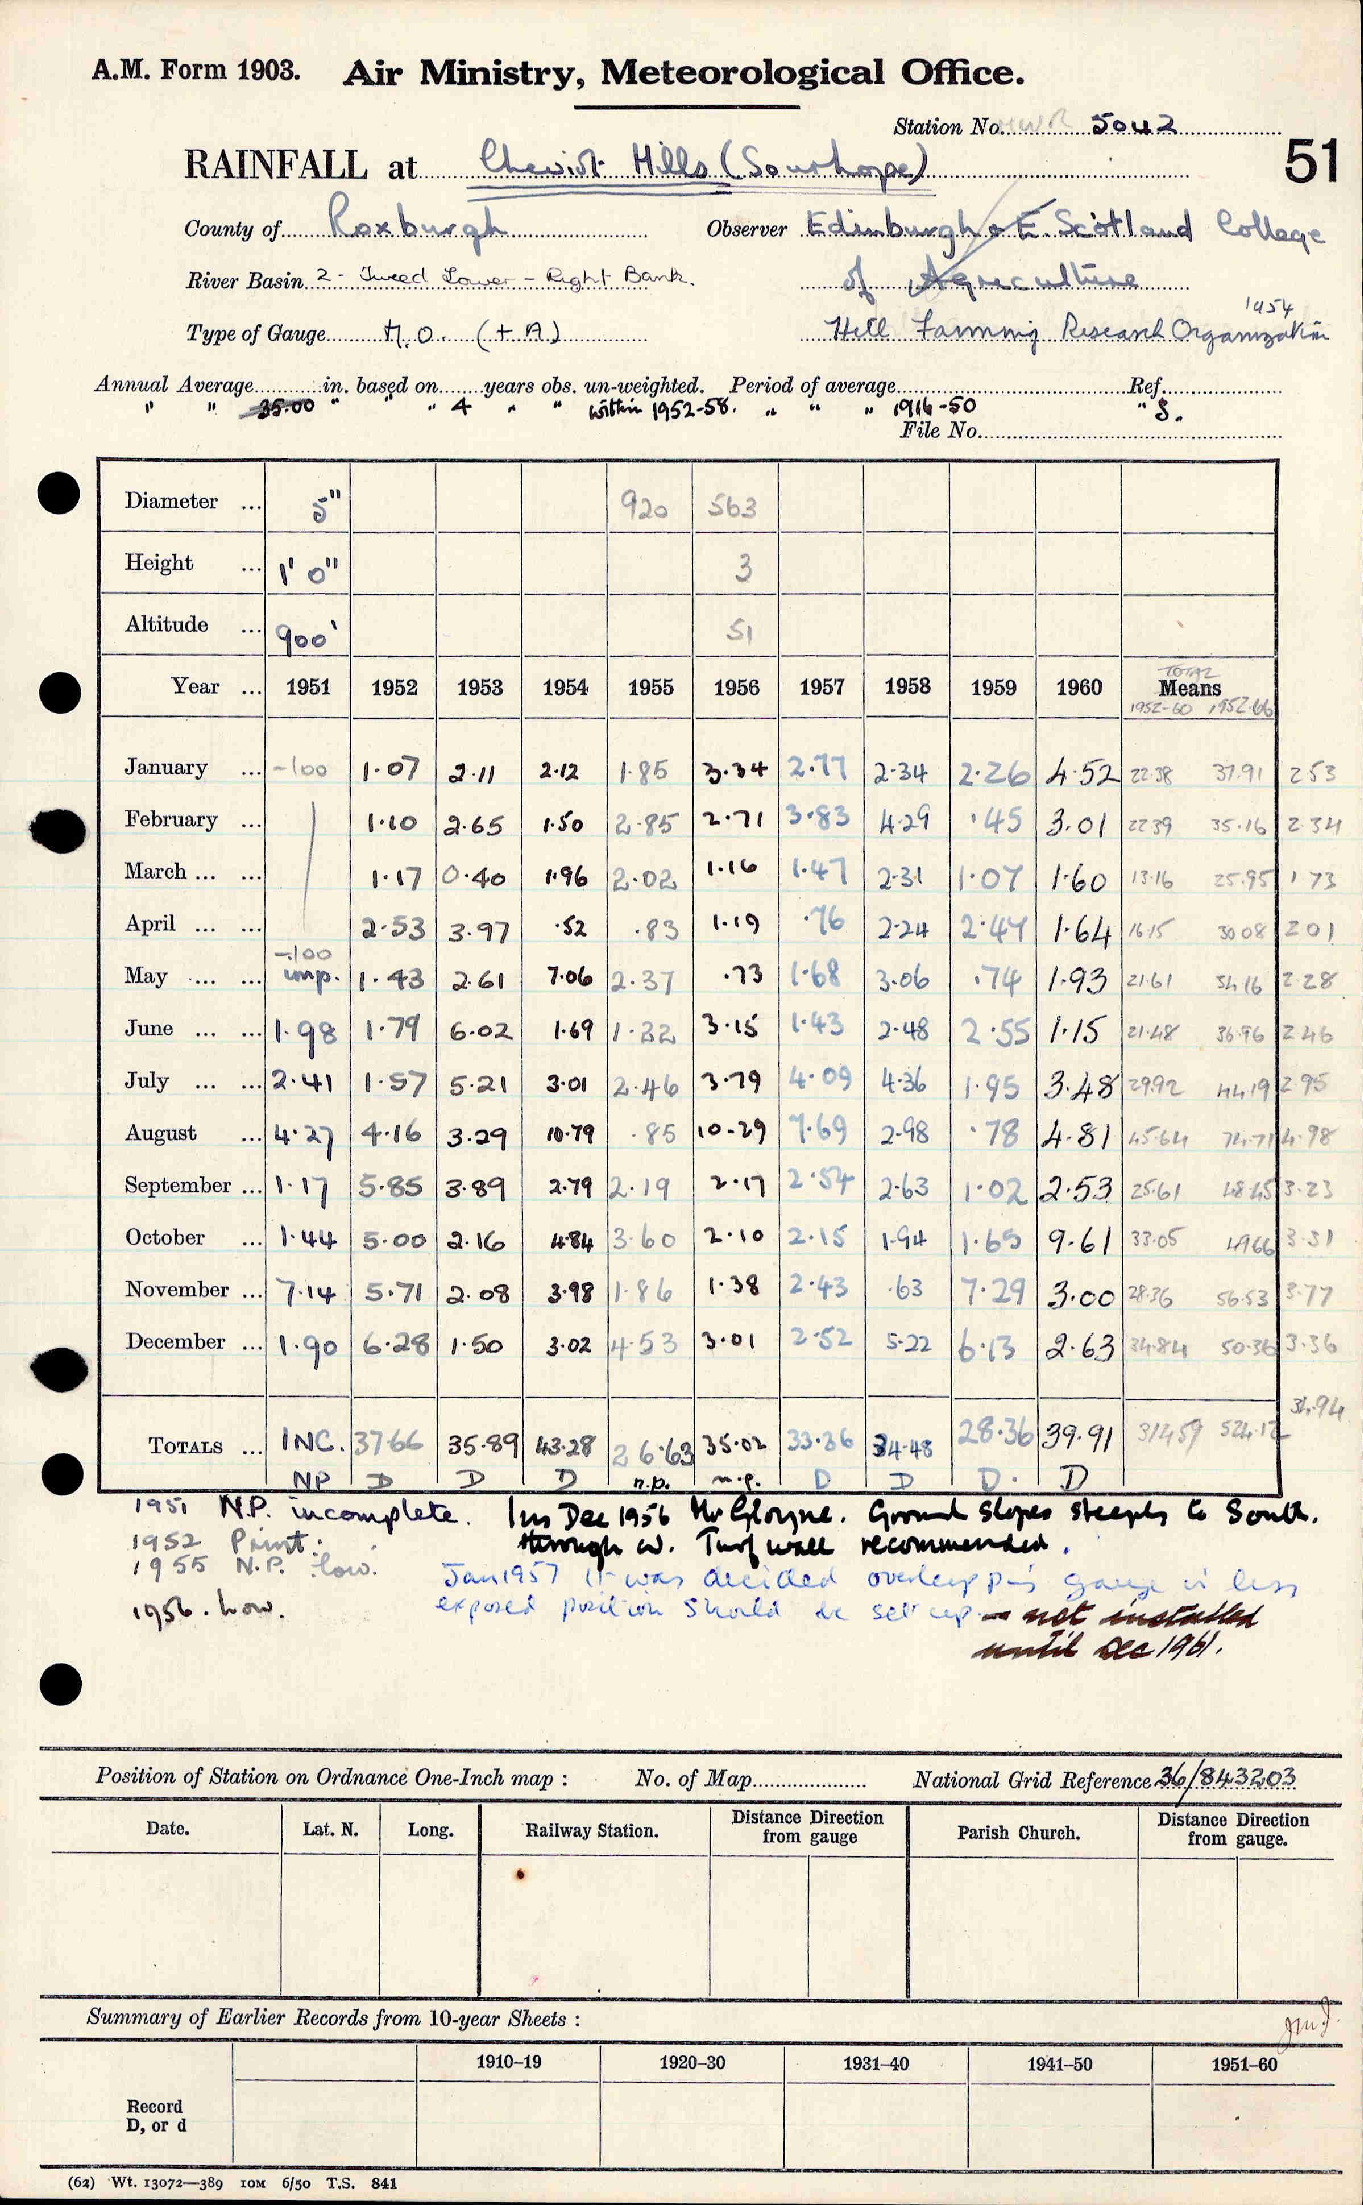 A.M. Form 1903. Air Ministry, Meteorological Office.
Station No. HWR 5042
51
RAINFALL at Cheviot Hills (Sourhope)
County of Roxburgh Observer Edinburgh & E. Scotland College
River Basin 2 - Tweed Lower - Right Bank. of Agriculture
1954
Type of Gauge M.O. (+A) Hill Farming Research Organization
Annual Average in. based on years obs. un-weighted. Period of average Ref.
" " 35.00 " " " 4 " " within 1952-58. " " " 1916-50 " S.
File No.
Diameter ... 5" 920 563
Height ... 1' 0" 3
Altitude ... 900' 51
TOTAL
Year ... 1951 1952 1953 1954 1955 1956 1957 1958 1959 1960 Means
1952-60 1952-66
January ... -100 1.07 2.11 2.12 1.85 3.34 2.77 2.34 2.26 4.52 22.38 37.91 2 53
February ... 1.10 2.65 1.50 2.85 2.71 3.83 4.29 .45 3.01 22 39 35.16 2.34
March ... ... 1.17 0.40 1.96 2.02 1.16 1.47 2.31 1.07 1.60 13.16 25.95 1 73
April ... ... 2.53 3.97 .52 .83 1.19 .76 2.24 2.47 1.64 16.15 30 08 2 01
-100
May ... ... imp. 1.43 2.61 7.06 2.37 .73 1.68 3.06 .74 1.93 21.61 34 16 2.28
June ... ... 1.98 1.79 6.02 1.69 1.22 3.15 1.43 2.48 2.55 1.15 21.48 36.96 2 46
July ... ... 2.41 1.57 5.21 3.01 2.46 3.79 4.09 4.36 1.95 3.48 29.92 44.19 2 95
August ... 4.27 4.16 3.29 10.79 .85 10.29 7.69 2.98 .78 4.81 45.64 74.71 4.98
September ... 1.17 5.85 3.89 2.79 2.19 2.17 2.54 2.63 1.02 2.53 25.61 48.45 3.23
October ... 1.44 5.00 2.16 4.84 3.60 2.10 2.15 1.94 1.65 9.61 33.05 49 66 3.31
November ... 7.14 5.71 2.08 3.98 1.86 1.38 2.43 .63 7.29 3.00 28.36 56.53 3.77
December ... 1.90 6.28 1.50 3.02 4.53 3.01 2.52 5.22 6.13 2.63 34.84 50.36 3.36
34.94
TOTALS ... INC. 37.66 35.89 43.28 26.63 35.02 33.36 34.48 28.36 39.91 314.59 524.12
NP D D D n.p. n.p. D D D. D
1951 N.P. incomplete. Ins Dec 1956 Mr Gloyne. Ground slopes steeply to South.
1952 Print. through W. Turf wall recommended.
1955 N.P. low. Jan 1957 it was decided overlapping gauge in less
1956. Low. exposed position should be set up - not installed
until Dec 1961.
Position of Station on Ordnance One-Inch map : No. of Map National Grid Reference 36/843203
Date. Lat. N. Long. Railway Station. Distance Direction from gauge Parish Church. Distance Direction from gauge.
Summary of Earlier Records from 10-year Sheets :
1910–19 1920–30 1931–40 1941–50 1951–60
Record
D, or d
(62) Wt. 13072—389 10M 6/50 T.S. 841